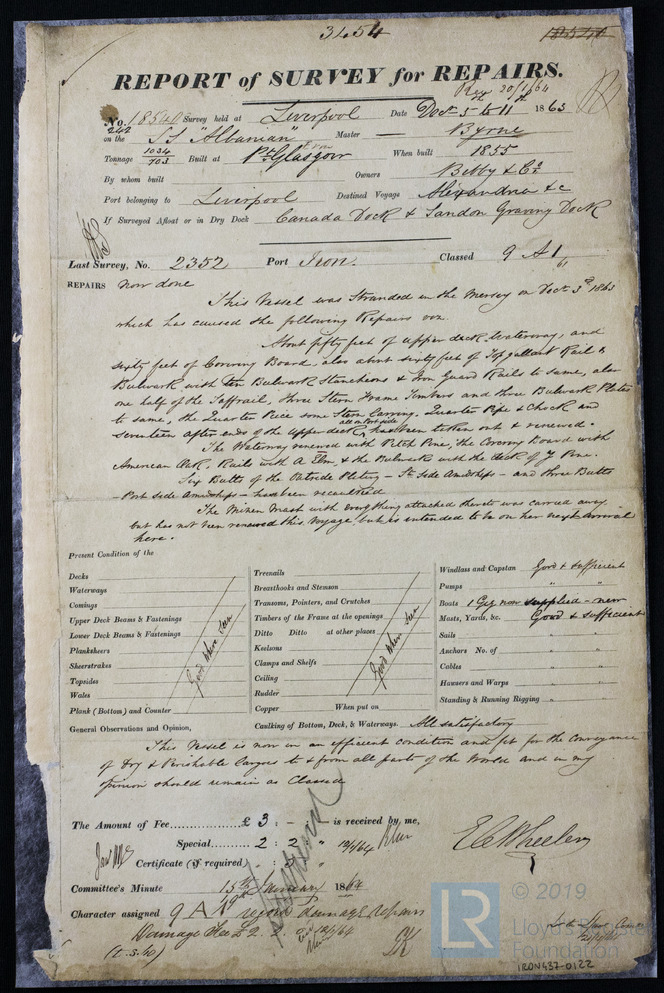 3454
REPORT of SURVEY for REPAIRS.
Rec 20/1/64
No. 18540 Survey held at Liverpool Date Decr 5th to 11th 1863
242
on the SS "Albanian" Master Byrne
Tonnage 1034 703 Built at Pt Glasgow When built 1855
By whom built Owners Bibby & Co.
Port belonging to Liverpool Destined Voyage Alexandria &c
If Surveyed Afloat or in Dry Dock Canada Dock & Sandon Graving Dock
Last Survey, No. 2352 Port Iron. Classed 9 A1
61
REPAIRS now done
This Vessel was Stranded in the Mersey on Decr 3rd 1863
which has caused the following Repairs viz.
About fifty feet of upper deck Waterway, and
sixty feet of Covering Board, also about sixty feet of Topgallant Rail &
Bulwark with ten Bulwark Stancheons & Iron Guard Rails to same, also
one half of the Taffrail, three Stern Frame Timbers and three Bulwark Plates
to same, the Quarter Piece some Stern Carving. Quarter Pipe & Chock and
all on Port side
seventeen after ends of the upper deck, has been taken out & renewed.
The Waterway renewed with Pitch Pine, the Covering Board with
American Oak, Rails with A Elm, & the Bulwarks with the deck of Y Pine.
Six Butts of the Outside Plating – St. side Amidships – and three Butts
Port side Amidships – have been recaulked
The Mizen Mast with everything attached thereto was carried away
but has not been renewed this Voyage, but is intended to be on her next arrival
here.
Present Condition of the
Decks
Waterways
Comings
Upper Deck Beams & Fastenings
Lower Deck Beams & Fastenings
Planksheers
Sheerstrakes
Topsides
Wales
Plank (Bottom) and Counter
Good where seen
Treenails
Breasthooks and Stemson
Transoms, Pointers, and Crutches
Timbers of the Frame at the openings
Ditto Ditto at other places
Keelsons
Clamps and Shelfs
Ceiling
Rudder
Copper When put on
Good where seen
Windlass and Capstan Good & sufficient
Pumps " "
Boats 1 Gig now supplied – new
Masts, Yards, &c. Good & sufficient
Sails " "
Anchors No. of " "
Cables " "
Hawsers and Warps " "
Standing & Running Rigging " "
General Observations and Opinion, Caulking of Bottom, Deck, & Waterways. All satisfactory
This Vessel is now in an efficient condition and fit for the Conveyance
of Dry & Perishable Cargoes to & from all parts of the World and in my
opinion should remain as Classed
The Amount of Fee £ 3 : – : – is received by me,
Special 2 : 2 "
Certificate (if required)
E C Wheeler
Committee's Minute 15th January 1864
Character assigned 9 A1
Damage Fee £ 2. 2.
LR
© 2019
Lloyd's Register
Foundation
IRON437-0122